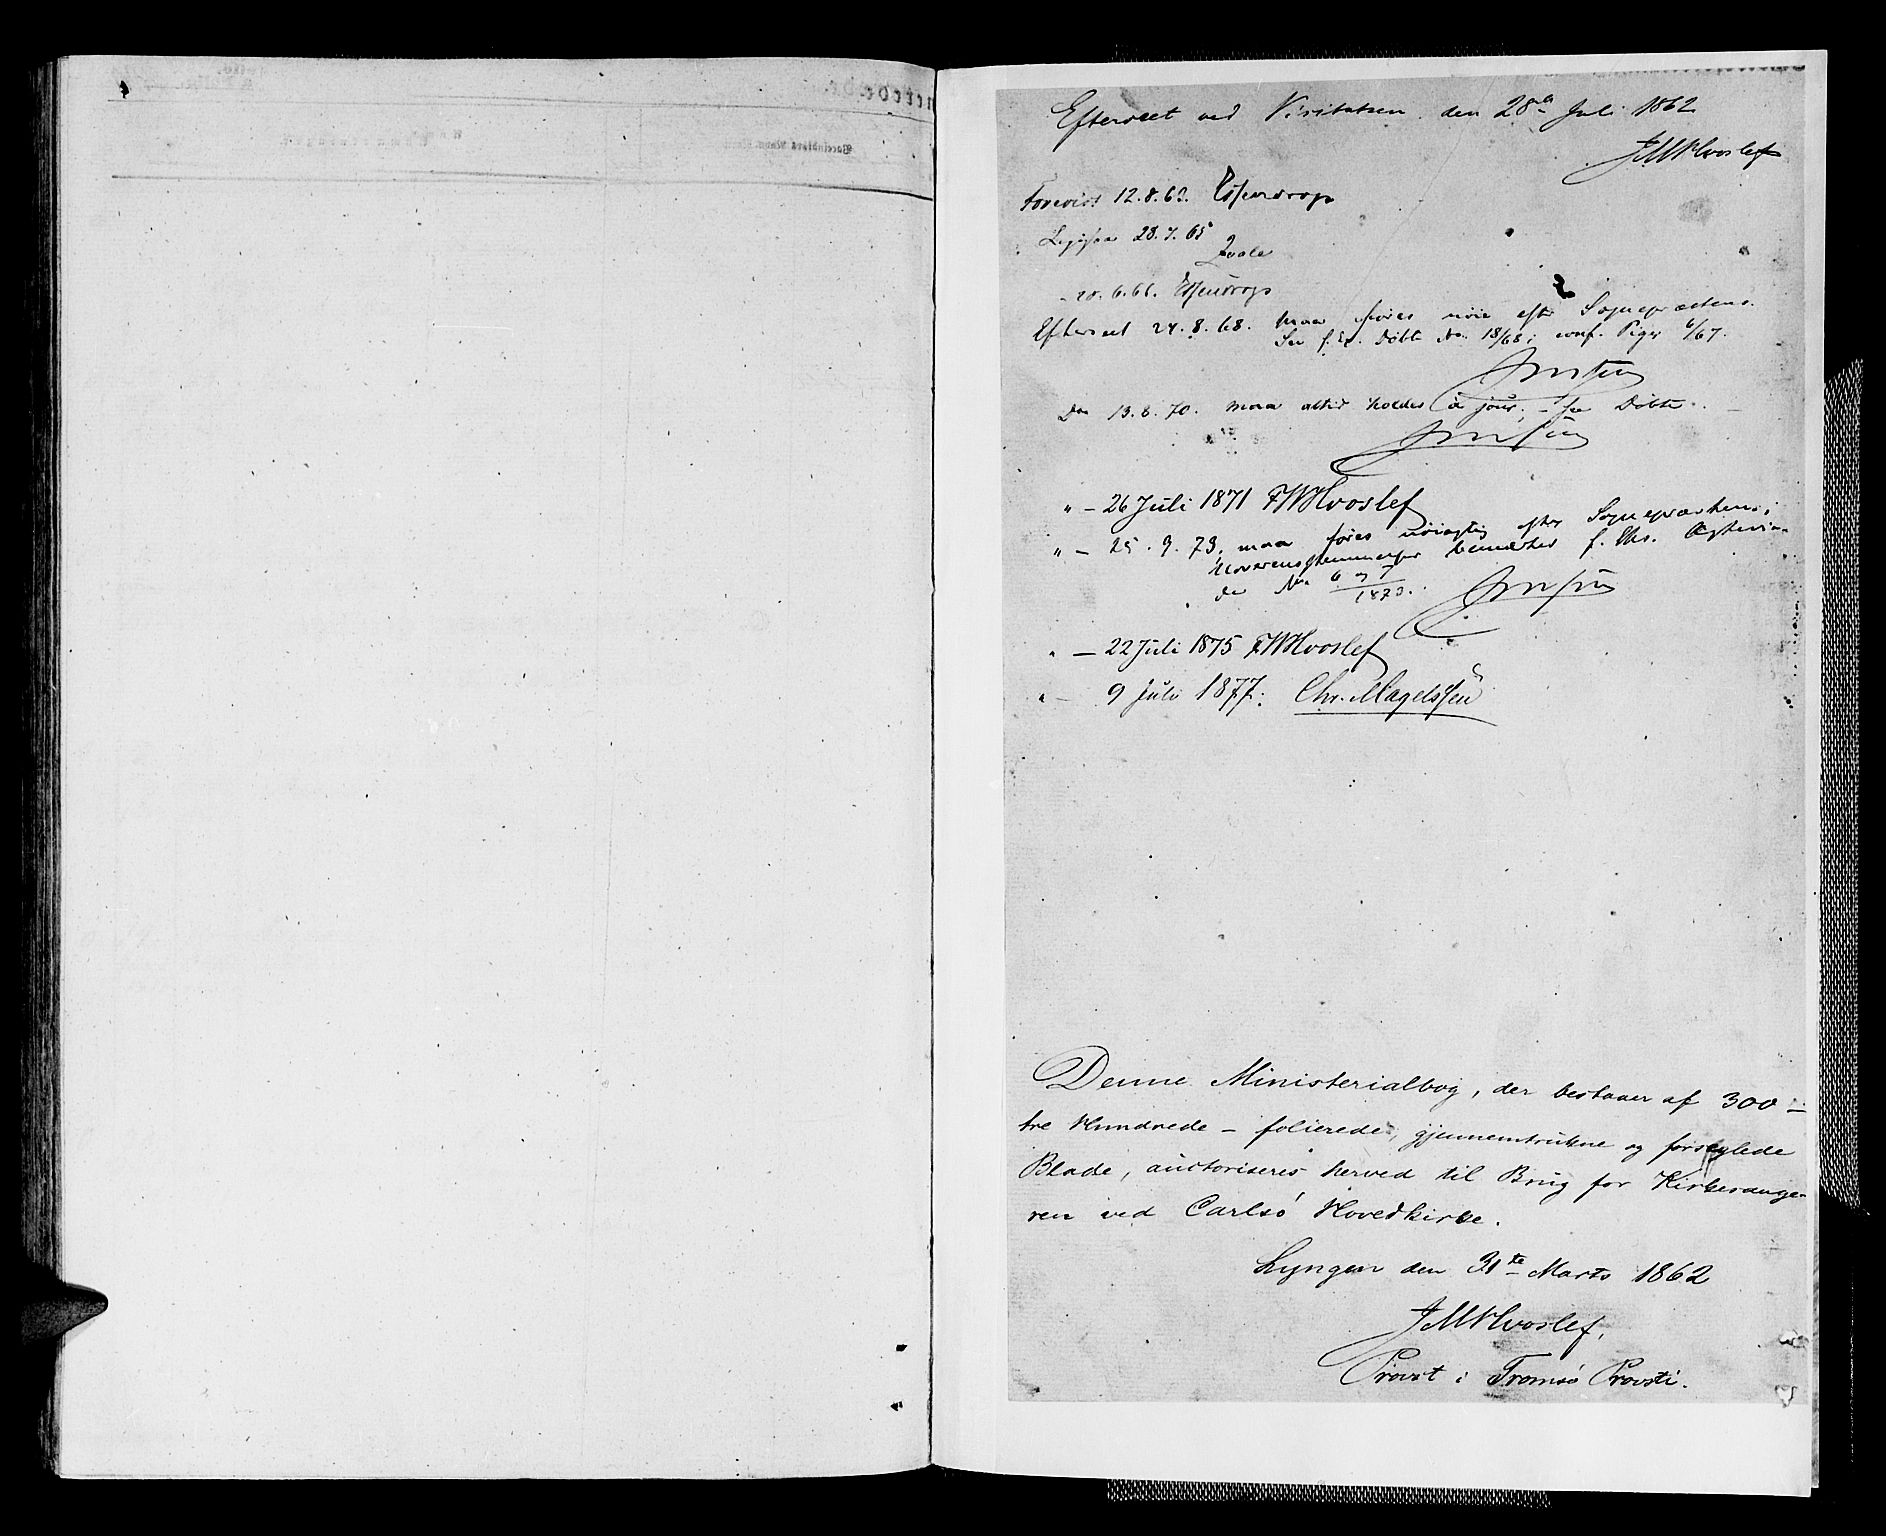 Efterseet ved Visitatsen den 28de Juli 1862
JMHvoslef
Foreviist 12.8.63. Essendrop
Ligesaa 28.7.65
Qvale
- 20.6.66. Essendrop
Efterseet 24.8.68. maa føres nøie efter Sognepræstens.
See f. Ex. Døbte No. 18/68; conf. Piger 6/67.
Do 13.8.70. maa altid holdes à jour; - see Døbte. -
" - 26 Juli 1871 FWHvoslef
" - 25.9.73. maa føres nøiagtig efter Sognepræstens;
Uoverensstemmelser bemærkes f. Eks. Ægtevie-
de No 6 og 7
1873.
" - 22 Juli 1875 FWHvoslef
" - 9 Juli 1877: Chr. Magelssen
Denne Ministerialbog, der bestaaer af 300 -
tre Hundrede - folierede, gjennemtrukne og forseglede
Blade, auctoriseres herved til Brug for Kirkesange-
ren ved Carlsö Hovedkirke.
Lyngen den 31te Marts 1862
JMHvoslef,
Provst i Tromsö Provsti.